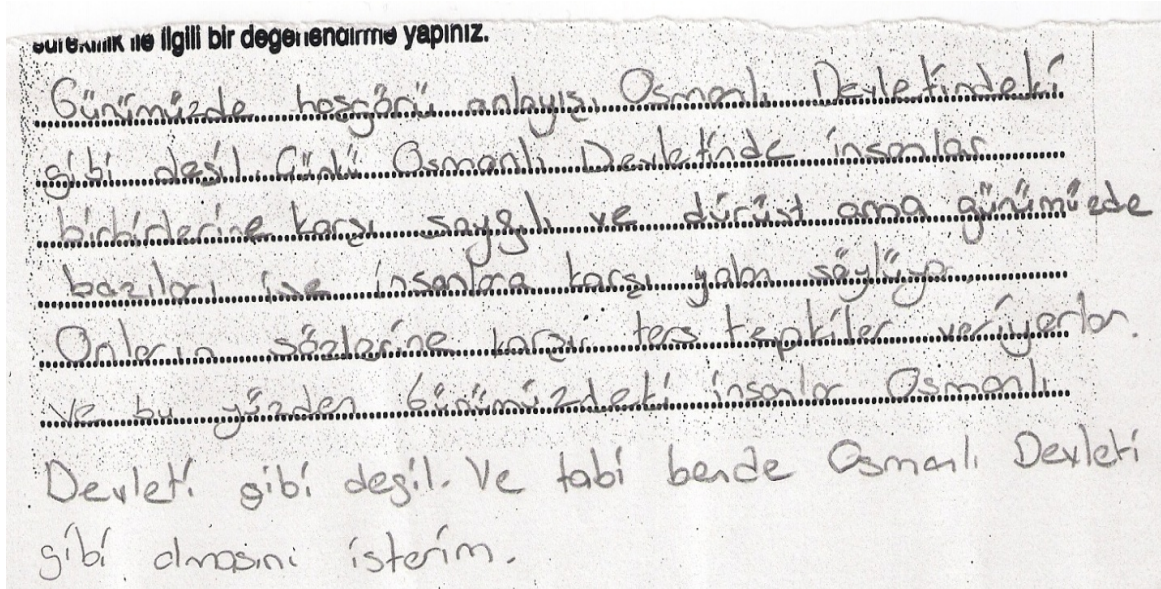 süreklilik ile ilgili bir değerlendirme yapınız.
Günümüzde hoşgörü anlayışı Osmanlı Devletindeki
gibi değil. Çünkü Osmanlı Devletinde insanlar
birbirlerine karşı saygılı ve dürüst ama günümüzde
bazıları ise insanlara karşı yalan söylüyor.
Onların sözlerine karşı ters tepkiler veriyorlar.
ve bu yüzden Günümüzdeki insanlar Osmanlı
Devleti gibi değil. Ve tabi bende Osmanlı Devleti
gibi olmasını isterim.